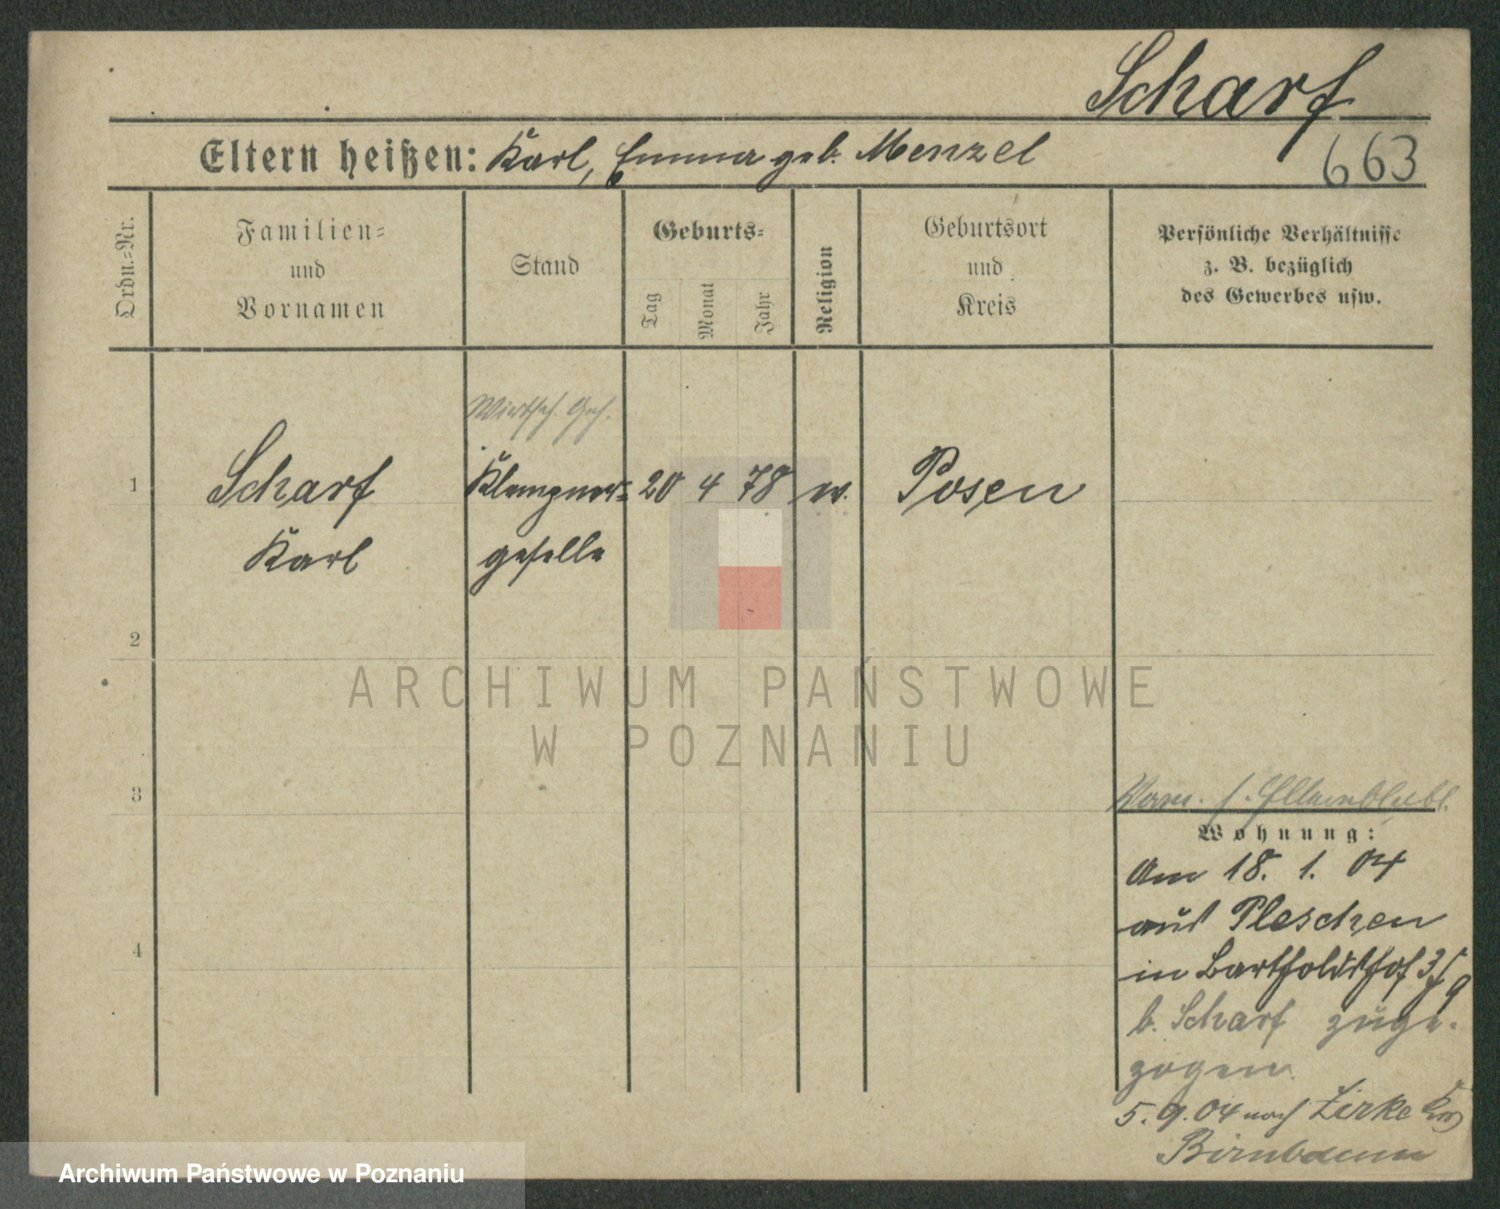 Scharf
663
Eltern heißen: Karl, Emma geb. Menzel
Ordn.=Nr.
Familien=
und
Vornamen
Stand
Geburts=
Tag
Monat
Jahr
Religion
Geburtsort
und
Kreis
Persönliche Verhältnisse
z. B. bezüglich
des Gewerbes usw.
Wirtsch. Geh.
1 Scharf Klempner= 20 4 78 ev. Posen
Karl geselle
2
3
4
Wohnung:
Am 18. 1. 04
aus Pleschen
in Bartholdshof
b. Scharf zuge-
zogen.
5.9.04 nach Zirke Krs
Birnbaum
ARCHIWUM PAŃSTWOWE
W POZNANIU
Archiwum Państwowe w Poznaniu